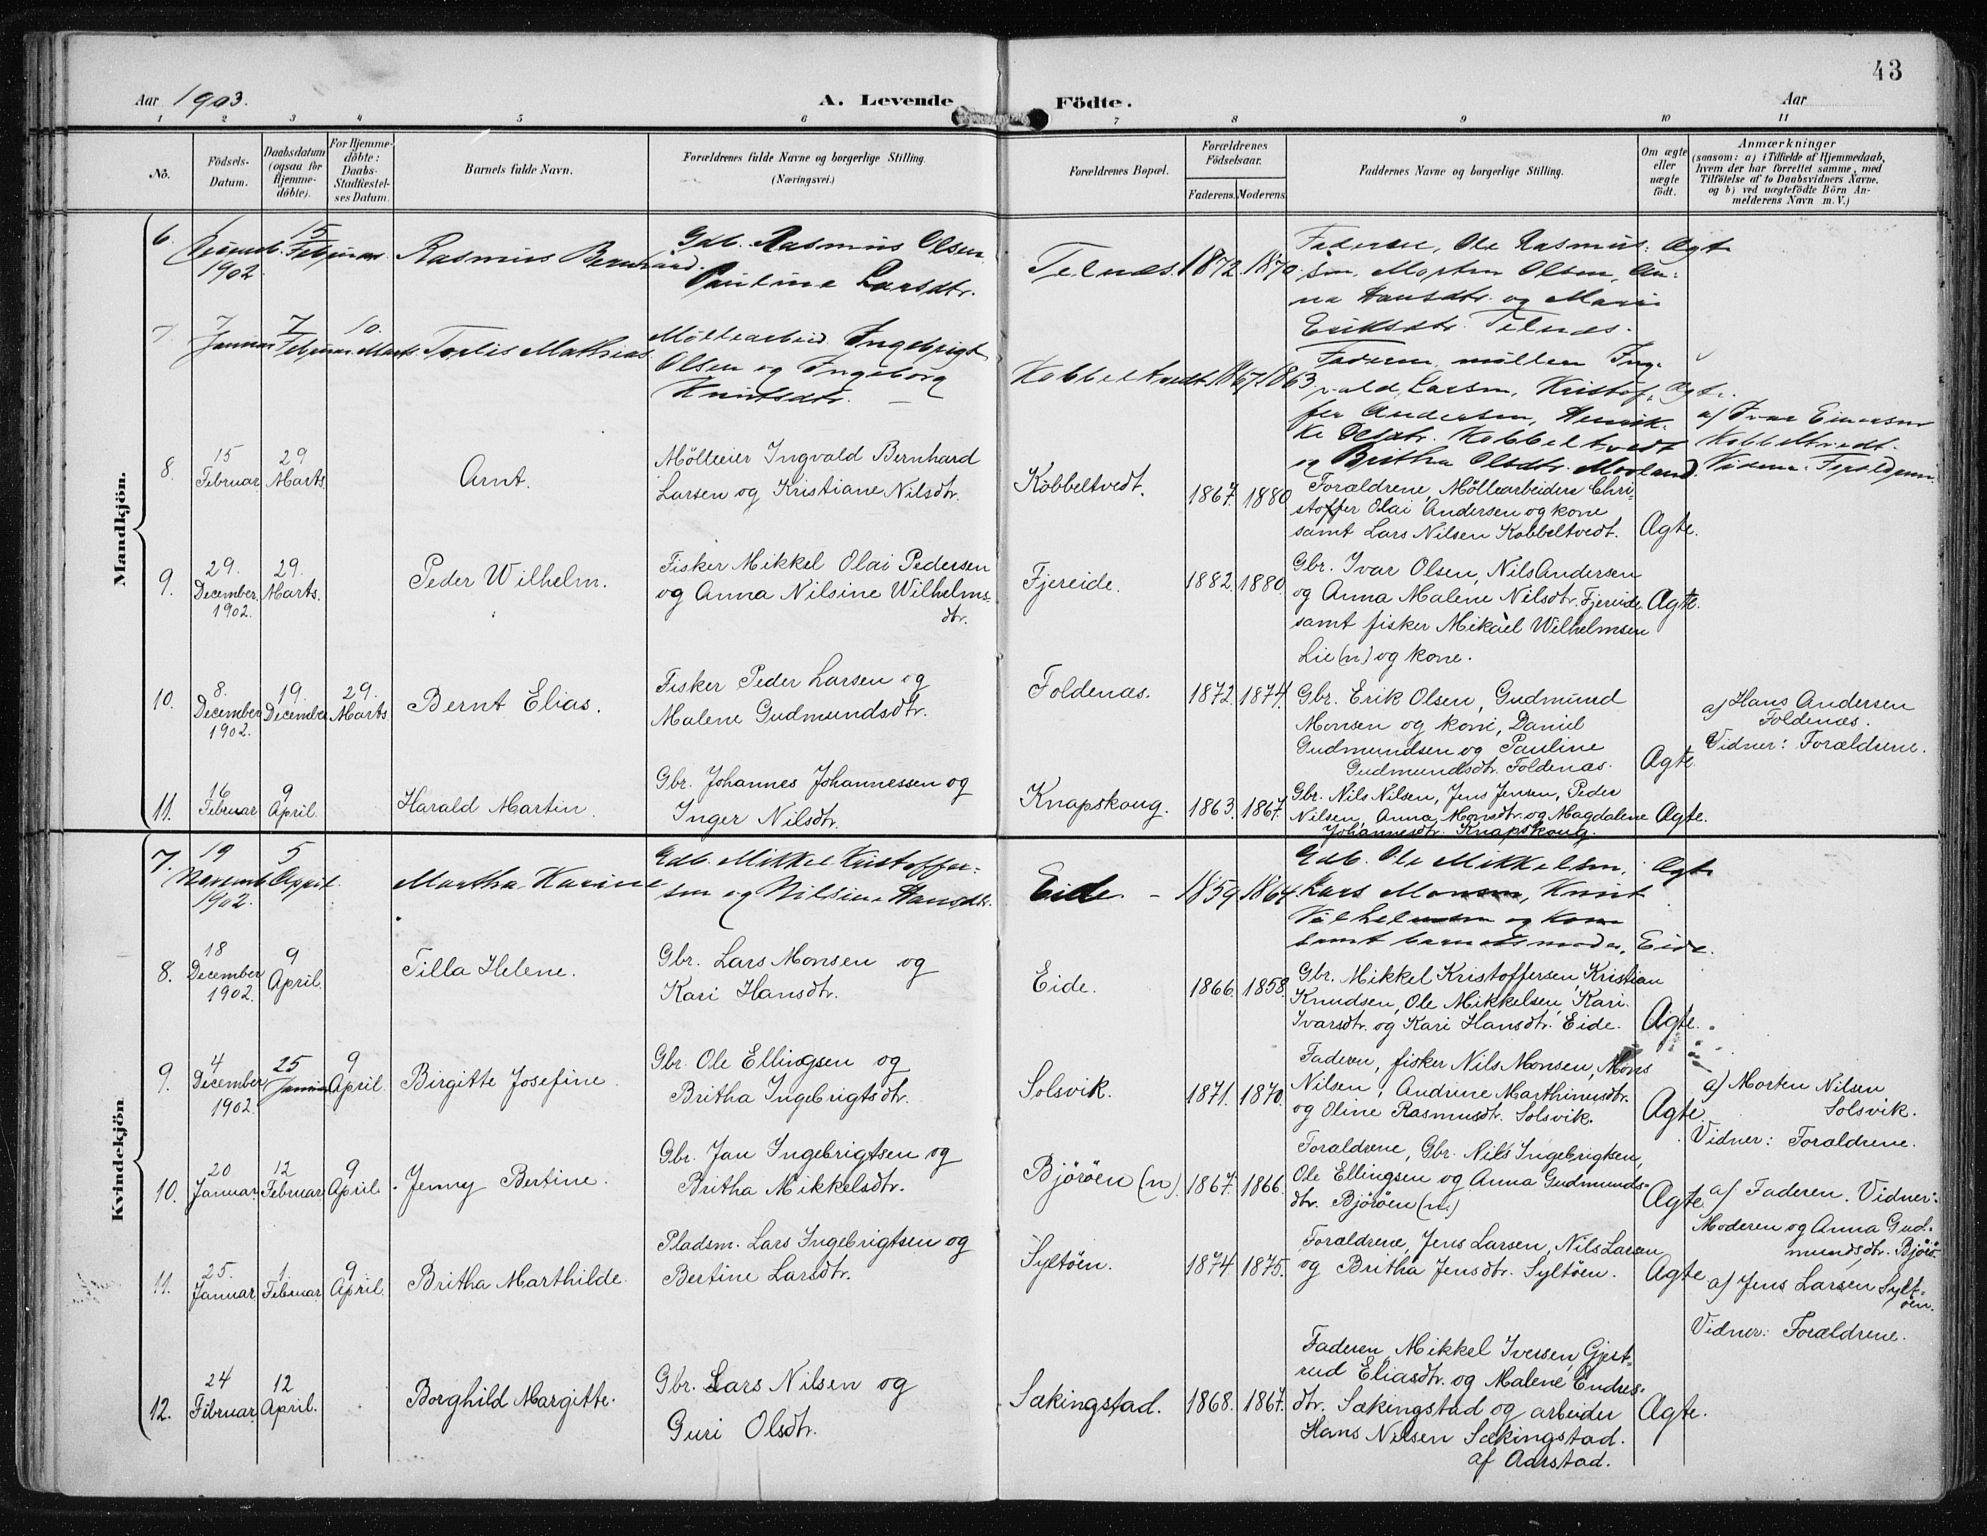 43
Aar 1903.
A. Levende Födte.
Aar
1 2 3 4 5 6 7 8 9 10 11
No.
Födsels-
Datum.
Daabsdatum
(ogsaa for
Hjemme-
döbte).
For Hjemme-
döbte:
Daabs-
Stadfæstel-
ses Datum.
Barnets fulde Navn.
Forældrenes fulde Navne og borgerlige Stilling.
(Næringsvei.)
Forældrenes Bopæl.
Forældrenes
Födselsaar.
Faderens. Moderens.
Faddernes Navne og borgerlige Stilling.
Om ægte
eller
uægte
født.
Anmærkninger
(saasom: a) i Tilfælde af Hjemmedaab,
hvem der har forrettet samme, med
Tilföielse af to Daabsvidners Navne,
og b) ved uægtefödte Börn An-
melderens Navn m. V.)
Mandkjön.
6.
1902
15
Februar
Rasmus Bernhard.
Gdb. Rasmus Olsen
Pauline Larsdtr.
Telnæs. 1872. 1870
Faderen, Ole Rasmus-
sen, Morten Olsen, An-
na Hansdtr. og Mari
Eriksdtr. Telnæs.
Ægte
7
7
Januar
7
Februar
10.
Marts
Mathias
Möllearbeid. Ingebrigt
Olsen og Ingeborg
Knutsdtr.
Kobbeltvedt 1867 1863
Faderen, möller Ing-
vald Larsen, Kristof-
fer Andersen, Henrik-
ke Olsdtr. Kobbeltvedt
og Britha Olsdtr. Movland.
Ægte.
a) Ivar Einarsen
Kobbeltvedt.
Vidner: Forældrene.
8.
15
Februar
29
Marts
Arnt.
Mölleeier Ingvald Bernhard
Larsen og Kristiane Nilsdtr.
Kobbeltvedt.
1867. 1880
Forældrene, Möllearbeider Chri-
stoffer Olai Andersen og kone
samt Lars Nilsen Kobbeltvedt.
Ægte.
9.
29.
December.
1902.
29.
Marts.
Peder Wilhelm.
Fisker Mikkel Olai Pedersen
og Anna Nilsine Wilhelms-
dtr.
Fjereide.
1882. 1880.
Gbr. Ivar Olsen, Nils Andersen
og Anna Malene Nilsdtr. Fjereide
samt fisker Mikael Wilhelmsen
Lie (n) og kone.
Ægte.
10.
8.
December
1902.
19.
December
29.
Marts
Bernt Elias.
Fisker Peder Larsen og
Malene Gudmundsdtr.
Foldenæs.
1872. 1874.
Gbr. Erik Olsen, Gudmund
Monsen og kone, Daniel
Gudmundsen og Pauline
Gudmundsdtr. Foldenæs.
Ægte
a) Hans Andersen
Foldenæs.
Vidner: Forældrene.
11.
16
Februar
9
April.
Harald Martin.
Gbr. Johannes Johannessen og
Inger Nilsdtr.
Knapskoug.
1863. 1867.
Gbr. Nils Nilsen, Jens Jensen, Peder
Nilsen, Anna Monsdtr. og Magdalene
Johannesdtr. Knapskoug.
Ægte.
Kvindekjön
7.
19
Novemb.
1902
5
April.
Martha Karine
Gdb. Mikkel Kristoffer-
sen og Nilsine Hansdtr.
Eide. - 1859 1864
Gdb. Ole Mikkelsen,
Lars Monsen, Knut
Vilhelmsen og Kone
samt barnets moder, Eide.
Ægte
8.
18
December
1902.
9
April.
Tilla Helene.
Gbr. Lars Monsen og
Kari Hansdtr.
Eide.
1866. 1858
Gbr. Mikkel Kristoffersen, Kristian
Knudsen, Ole Mikkelsen, Kari
Ivarsdtr. og Kari Hansdtr. Eide.
Ægte.
9.
4
December
1902.
25
Januar
9
April.
Birgitte Josefine.
Gbr. Ole Ellingsen og
Britha Ingebrigtsdtr.
Solsvik.
1871. 1870.
Faderen, fisker Nils Monsen, Mons
Nilsen, Andrine Marthinusdtr.
og Oline Rasmusdtr. Solsvik.
Ægte
a) Morten Nilsen
Solsvik.
Vidner: Forældrene.
10.
20
Januar.
12
Februar
9
April
Jenny Bertine.
Gbr. Jan Ingebrigtsen og
Britha Mikkelsdtr.
Björöen (n)
1867. 1866.
Forældrene, Gbr. Nils Ingebrigtsen,
Ole Ellingsen og Anna Gudmunds-
dtr. Björöen (n.)
Ægte
a) Faderen. Vidner:
Moderen og Anna Gud-
mundsdtr. Björö
11.
25.
Januar
1.
Februar
9
April.
Britha Marthilde.
Pladsm. Lars Ingebrigtsen og
Bertine Larsdtr.
Syltöen.
1874. 1875.
Forældrene, Jens Larsen, Nils Larsen
og Britha Jensdtr. Syltöen.
Ægte
a) Jens Larsen, Sylt-
öen.
Vidner: Forældrene.
12.
24
Februar
12
April.
Borghild Margitte.
Gbr. Lars Nilsen og
Guri Olsdtr.
Sækingstad.
1868. 1867.
Faderen, Mikkel Iversen, Gjert-
rud Eliasdtr. og Malene Endres-
dtr. Sækingstad og arbeider
Hans Nilsen Sækingstad.
af Aarstad.
Ægte.